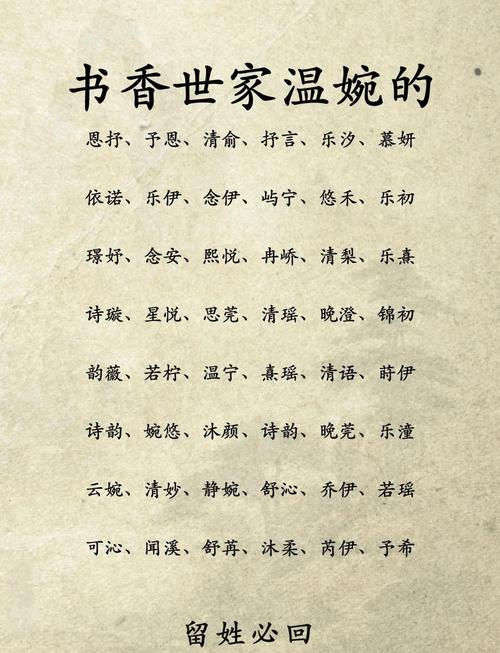 书香世家温婉的
恩抒、予恩、清俞、抒言、乐汐、慕妍
依诺、乐伊、念伊、屿宁、悠禾、乐初
璟妤、念安、熙悦、冉峤、清梨、乐熹
诗璇、星悦、思莞、清瑶、晚澄、锦初
韵薇、若柠、温宁、熹瑶、清语、莳伊
诗韵、婉悠、沐颜、诗韵、晚莞、乐潼
云婉、清妙、静婉、舒沁、乔伊、若瑶
可沁、闻溪、舒苒、沐柔、芮伊、予希
留姓必回